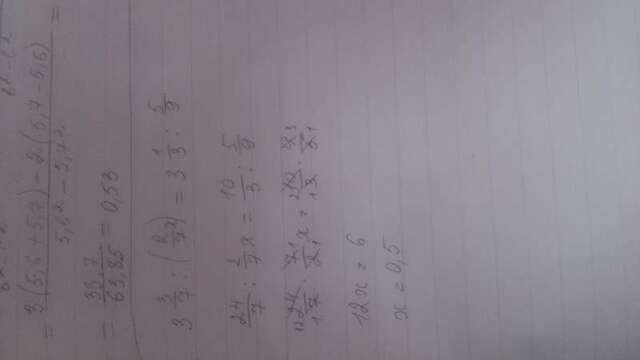 = 3(5,6+5,7) - 2(5,7-5,6) / 5,6² - 5,7² =
= 33,7 / 63,85 = 0,53
3 3/7 : (2/7 x) = 3 1/3 : 5/9
24/7 : 2/7 x = 10/3 : 5/9
12 24/1 7 · 7 1/2 1 x = 2 10/1 3 · 9 3/5 1
12x = 6
x = 0,5